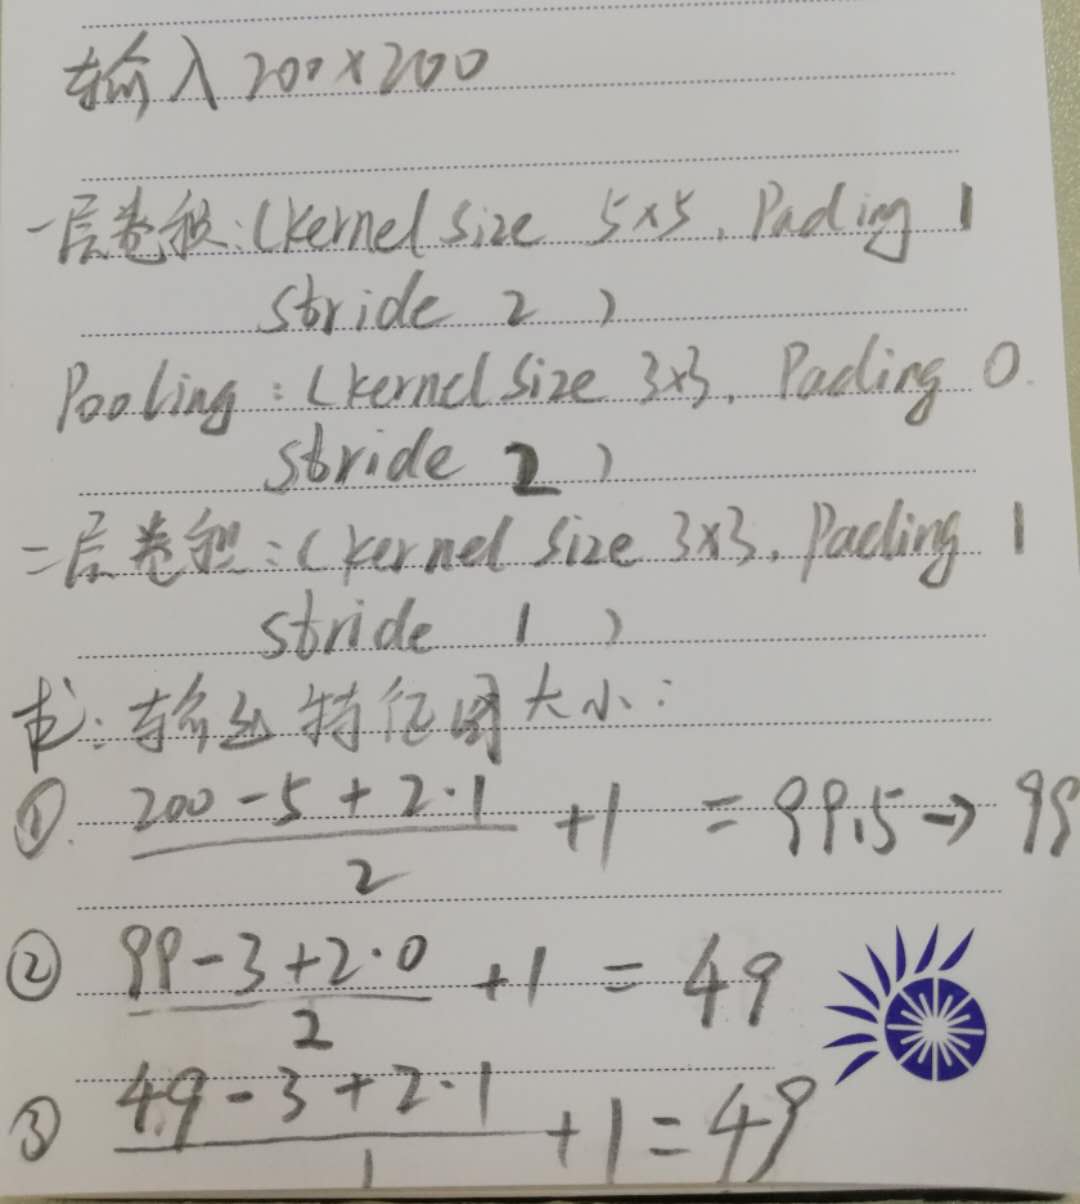 输入 200×200
一层卷积:(kernel size 5×5, Pading 1
stride 2 )
Pooling : (kernel size 3×3, Pading 0.
stride 2 )
二层卷积:(kernel size 3×3, Pading 1
stride 1 )
求:输出特征图大小:
① (200-5+2·1)/2 +1 = 99.5→99
② (99-3+2·0)/2 +1 = 49
③ (49-3+2·1)/1 +1=49